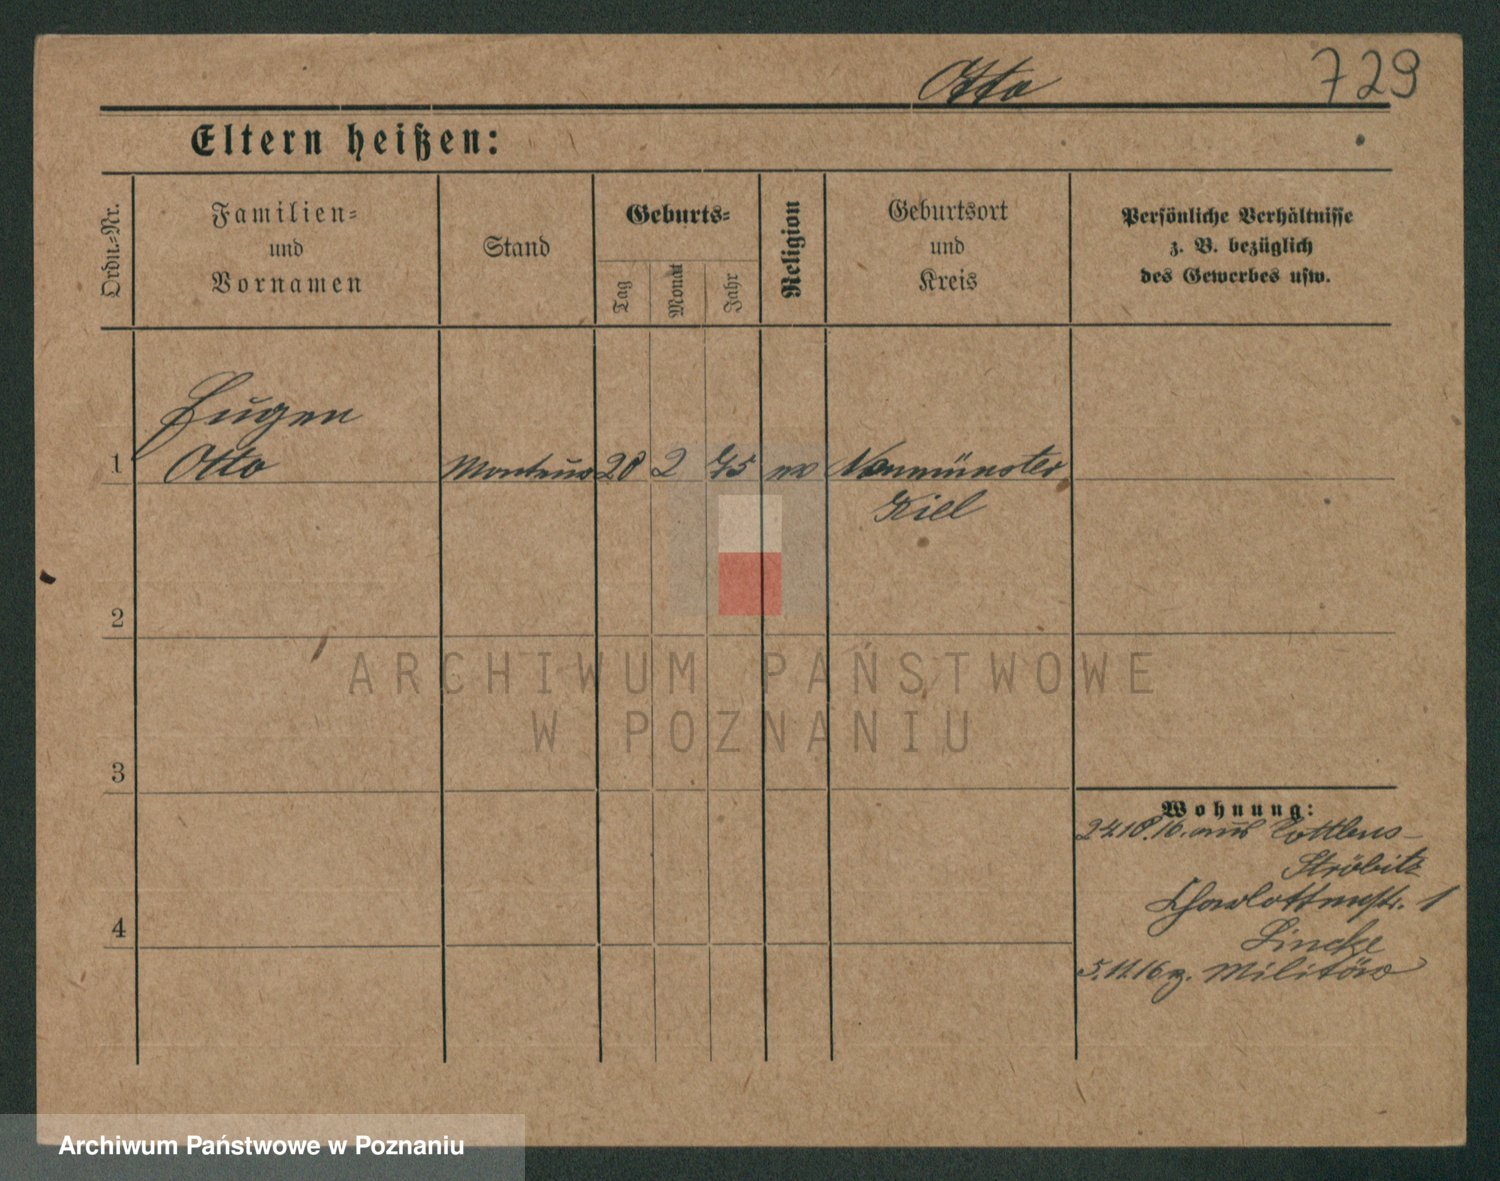 Otto
729
Eltern heißen:
Ordn.-Nr.
Familien-
und
Vornamen
Stand
Geburts-
Tag
Monat
Jahr
Religion
Geburtsort
und
Kreis
Persönliche Verhältnisse
z. B. bezüglich
des Gewerbes usw.
Eugen
1 Otto Monteur 28 2 75 ev Neumünster
Kiel
2
3
4
Wohnung:
24.10.16. aus Cottbus-
Ströbitz
Charlottenstr. 1
Lincke
5.11.16 z. Militär
ARCHIWUM PAŃSTWOWE
W POZNANIU
Archiwum Państwowe w Poznaniu